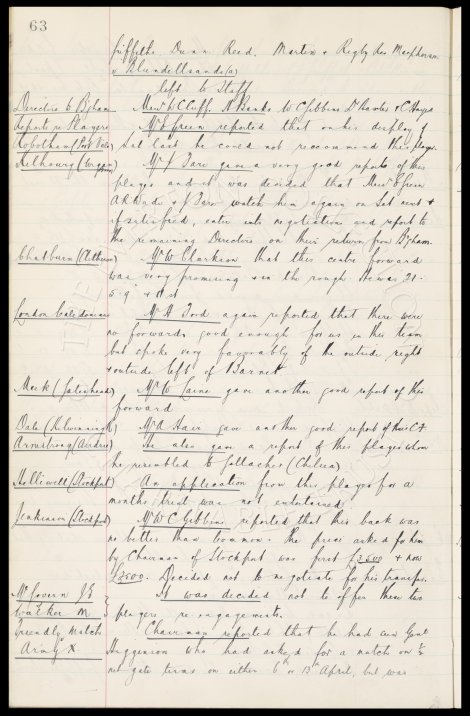 63
Griffiths Dunn Reed. Martin & Rigby Res Macpherson
v Blundellsands (a)
left to Staff
Directors to B'pham Messrs W C Cuff. A Banks W C Gibbins Dr Baxter & C Hayes
Reports re Players Mr E Green reported that on his display of
Robotham (Port Vale) Sat last he could not recommend this player.
Kilhourg (Wigan Boro) Mr J Fare gave a very good report of this
player and it was decided that Messrs E Green
A R Wade & J Fare watch him again on Sat next &
if satisfied, enter into negotiation and report to
the remaining Directors on their return from B'gham.
Chatburn (Atherton) Mr W Clarkson that this centre forward
was very promising & in the rough. He was 21.
5.9" & 11 st
London Caledonians Mr H Ford again reported that there were
no forwards good enough for us in this team
but spoke very favorably of the outside right
& outside left of Barnet
Meek (Gateshead) Mr W Laine gave another good report of this
forward
Dale (Kilwinning) Mr A Hair gave another good report of this C.F.
Armstrong (Airdrie) He also gave a report of this player whom
he resembled to Gallacher (Chelsea)
Halliwell (Stockport) An application from this player for a
months trial was not entertained
Jenkinson (Stockport) Mr W C Gibbins reported that this back was
no better than common. The price asked for him
by Chairman of Stockport was first £3500 & now
£2500. Decided not to negotiate for his transfer.
McGovern J E It was decided not to offer these two
Walker M players re-engagements.
Friendly Match Chairman reported that he had seen Genl
Army X Higginson who had asked for a match on ½
net gate terms on either 6 or 13th April, but was